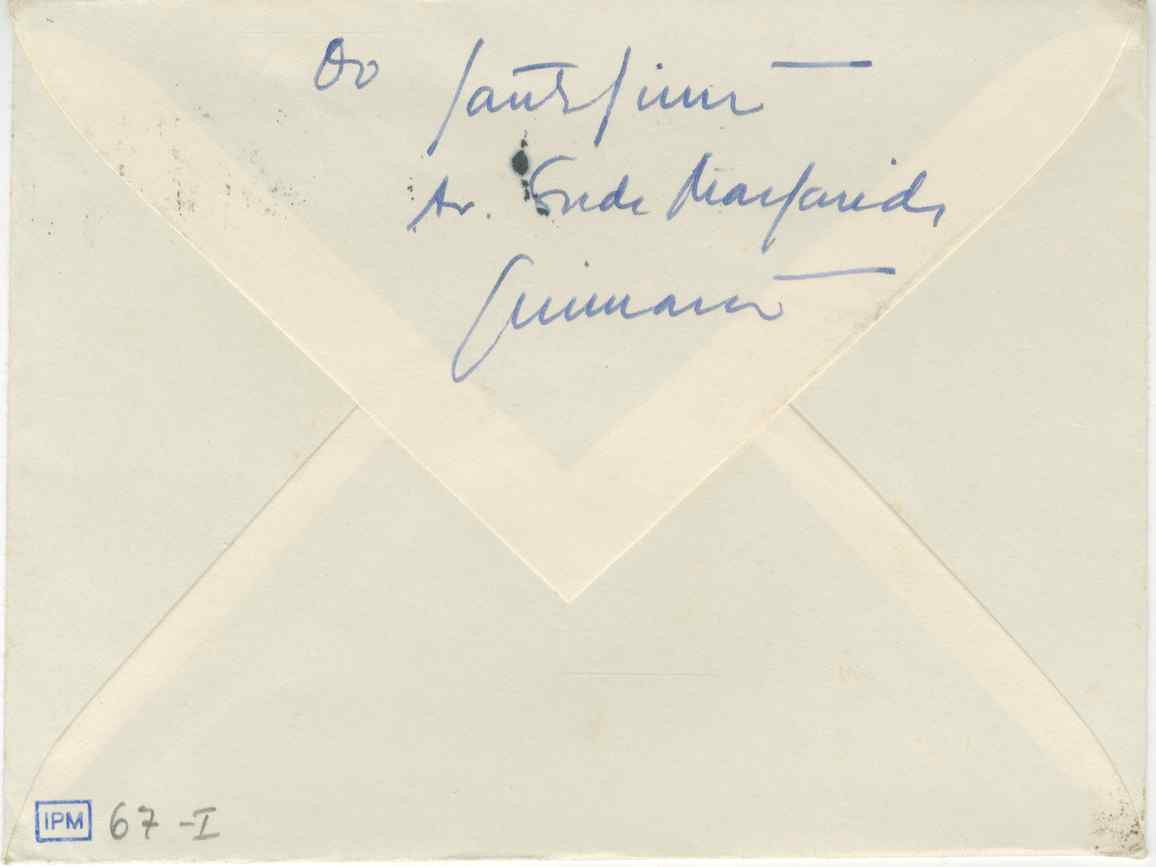 Do Santos Simões
Av. Conde Margaride
Guimarães
IPM 67-I